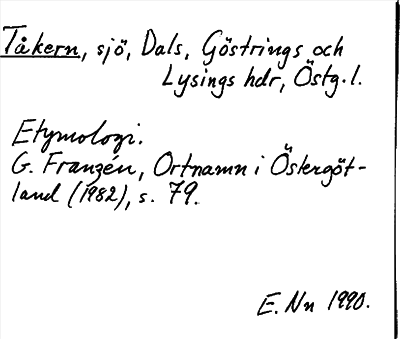 Tåkern, sjö, Dals, Göstrings och
Lysings hdr, Östg. l.
Etymologi.
G. Franzén, Ortnamn i Östergöt-
land (1982), s. 79.
E. Nn 1990.